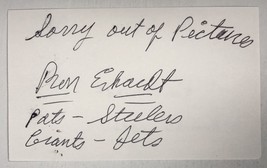 Sorry out of Pictures
Ron Erhardt
Pats - Steelers
Giants - Jets